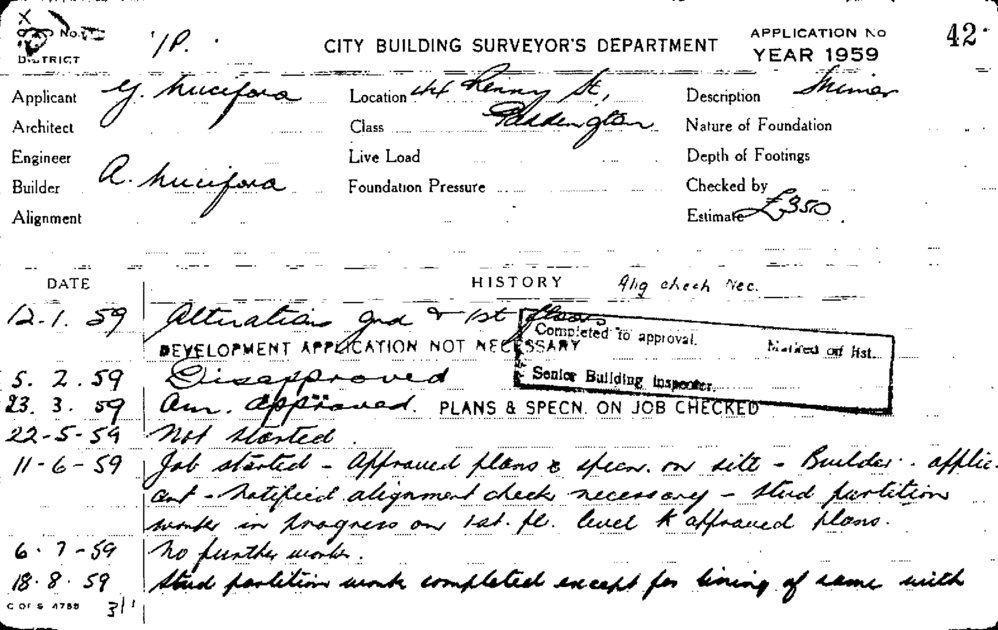 No.
DISTRICT
1P.
CITY BUILDING SURVEYOR'S DEPARTMENT
APPLICATION No 42
YEAR 1959
Applicant G. Nucifora
Location 44 Renny St,
Paddington
Description Minor
Architect
Class
Nature of Foundation
Engineer
Live Load
Depth of Footings
Builder A. Nucifora
Foundation Pressure
Checked by
Alignment
Estimate £350
DATE
HISTORY
Alig check Nec.
12.1.59 Alterations gnd & 1st floors
Completed to approval. Marked off list.
DEVELOPMENT APPLICATION NOT NECESSARY
Senior Building Inspector.
5.2.59 Disapproved
23.3.59 Am. approved. PLANS & SPECN. ON JOB CHECKED
22-5-59 Not started.
11-6-59 Job started - Approved plans & specn. on site - Builder - applic-
ant - Notified alignment check necessary - stud partition
works in progress on 1st. fl. level to approved plans.
6.7-59 No further work.
18.8.59 Stud partition work completed except for lining of same with
C OF S 4788